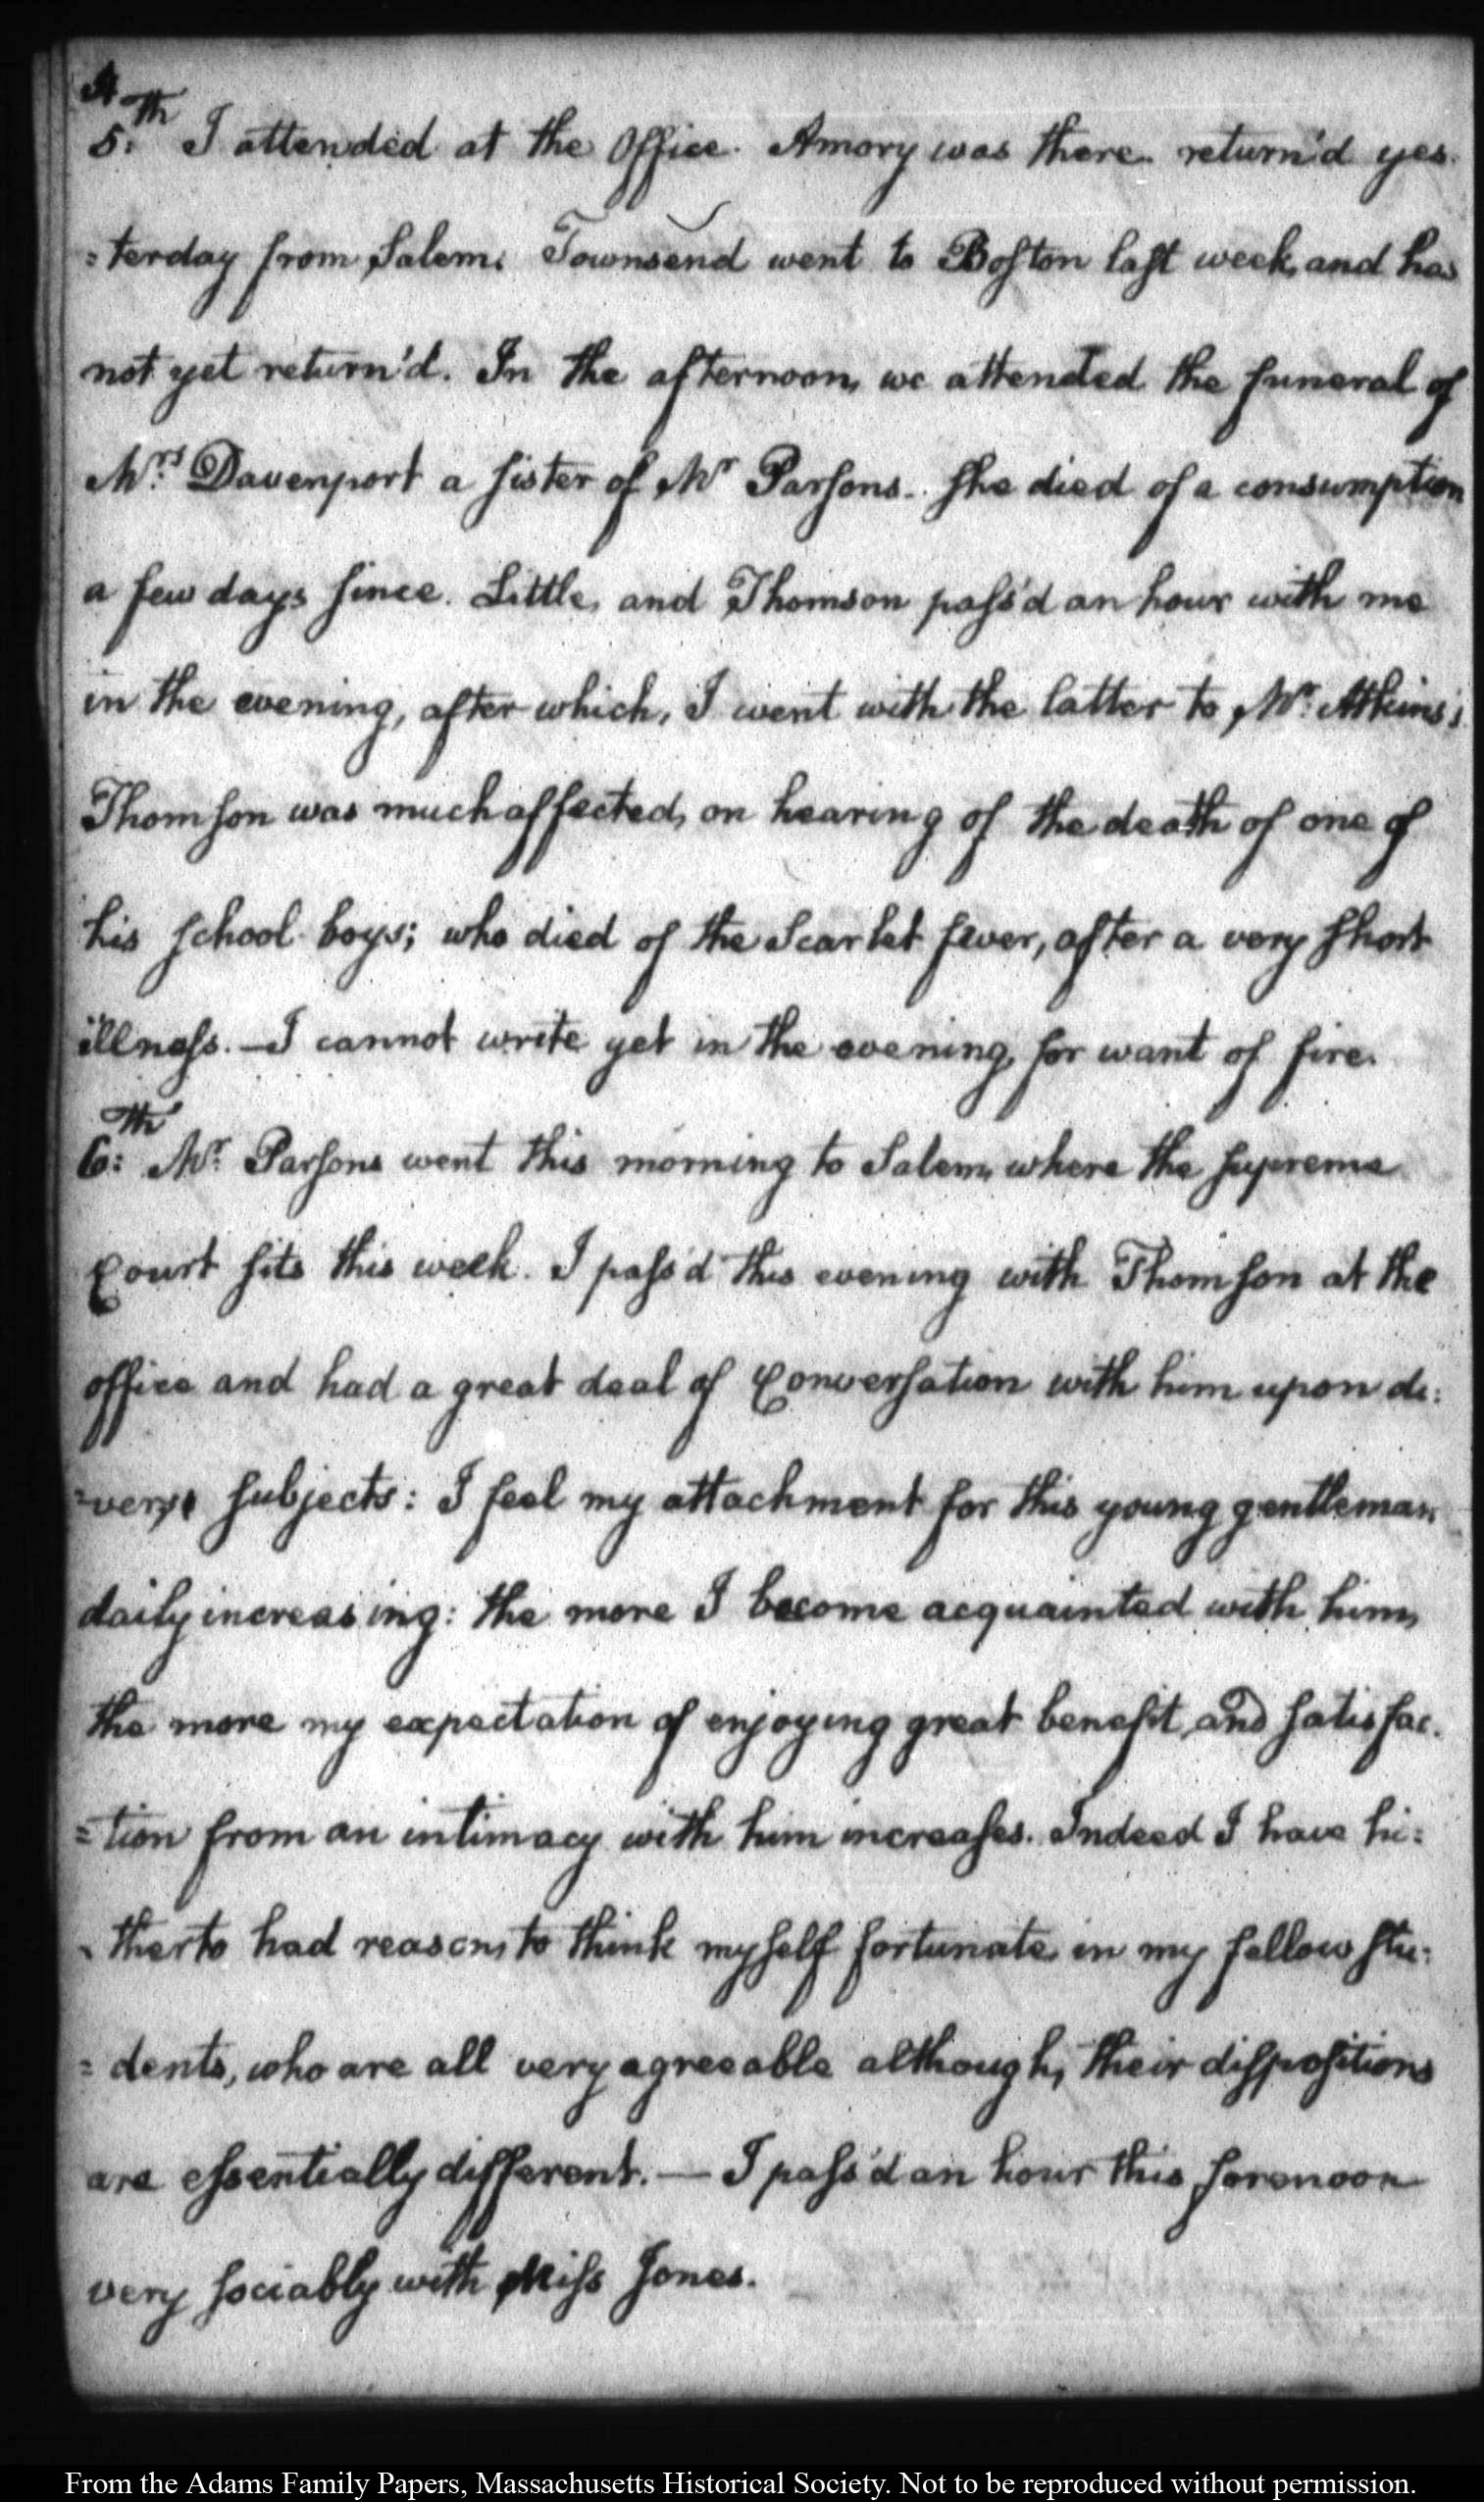 5.th I attended at the Office. Amory was there. return'd yes-
=terday from Salem. Townsend went to Boſton laſt week, and has
not yet return'd. In the afternoon, we attended the funeral of
Mrs. Davenport a ſister of Mr Parſons. ſhe died of a consumption
a few days ſince. Little, and Thomson paſs'd an hour with me
in the evening, after which, I went with the latter to Mr. Atkins's
Thomſon was much affected, on hearing of the death of one of
his ſchool boys; who died of the Scarlet fever, after a very ſhort
illneſs. — I cannot write yet in the evening, for want of fire.
6:th Mr. Parſons went this morning to Salem, where the ſupreme
Court ſits this week. I paſs'd this evening with Thomſon at the
office and had a great deal of Converſation with him upon di:
=verse ſubjects: I feel my attachment for this young gentleman
daily increasing: the more I become acquainted with him,
the more my expectation of enjoying great benefit, and ſatisfac-
=tion from an intimacy with him increaſes. Indeed I have hi:
-therto had reason, to think myſelf fortunate, in my fellow ſtu:
=dents, who are all very agreeable although, their diſpoſitions
are eſsentially different. — I paſs'd an hour this forenoon
very ſociably with Miſs Jones.
From the Adams Family Papers, Massachusetts Historical Society. Not to be reproduced without permission.